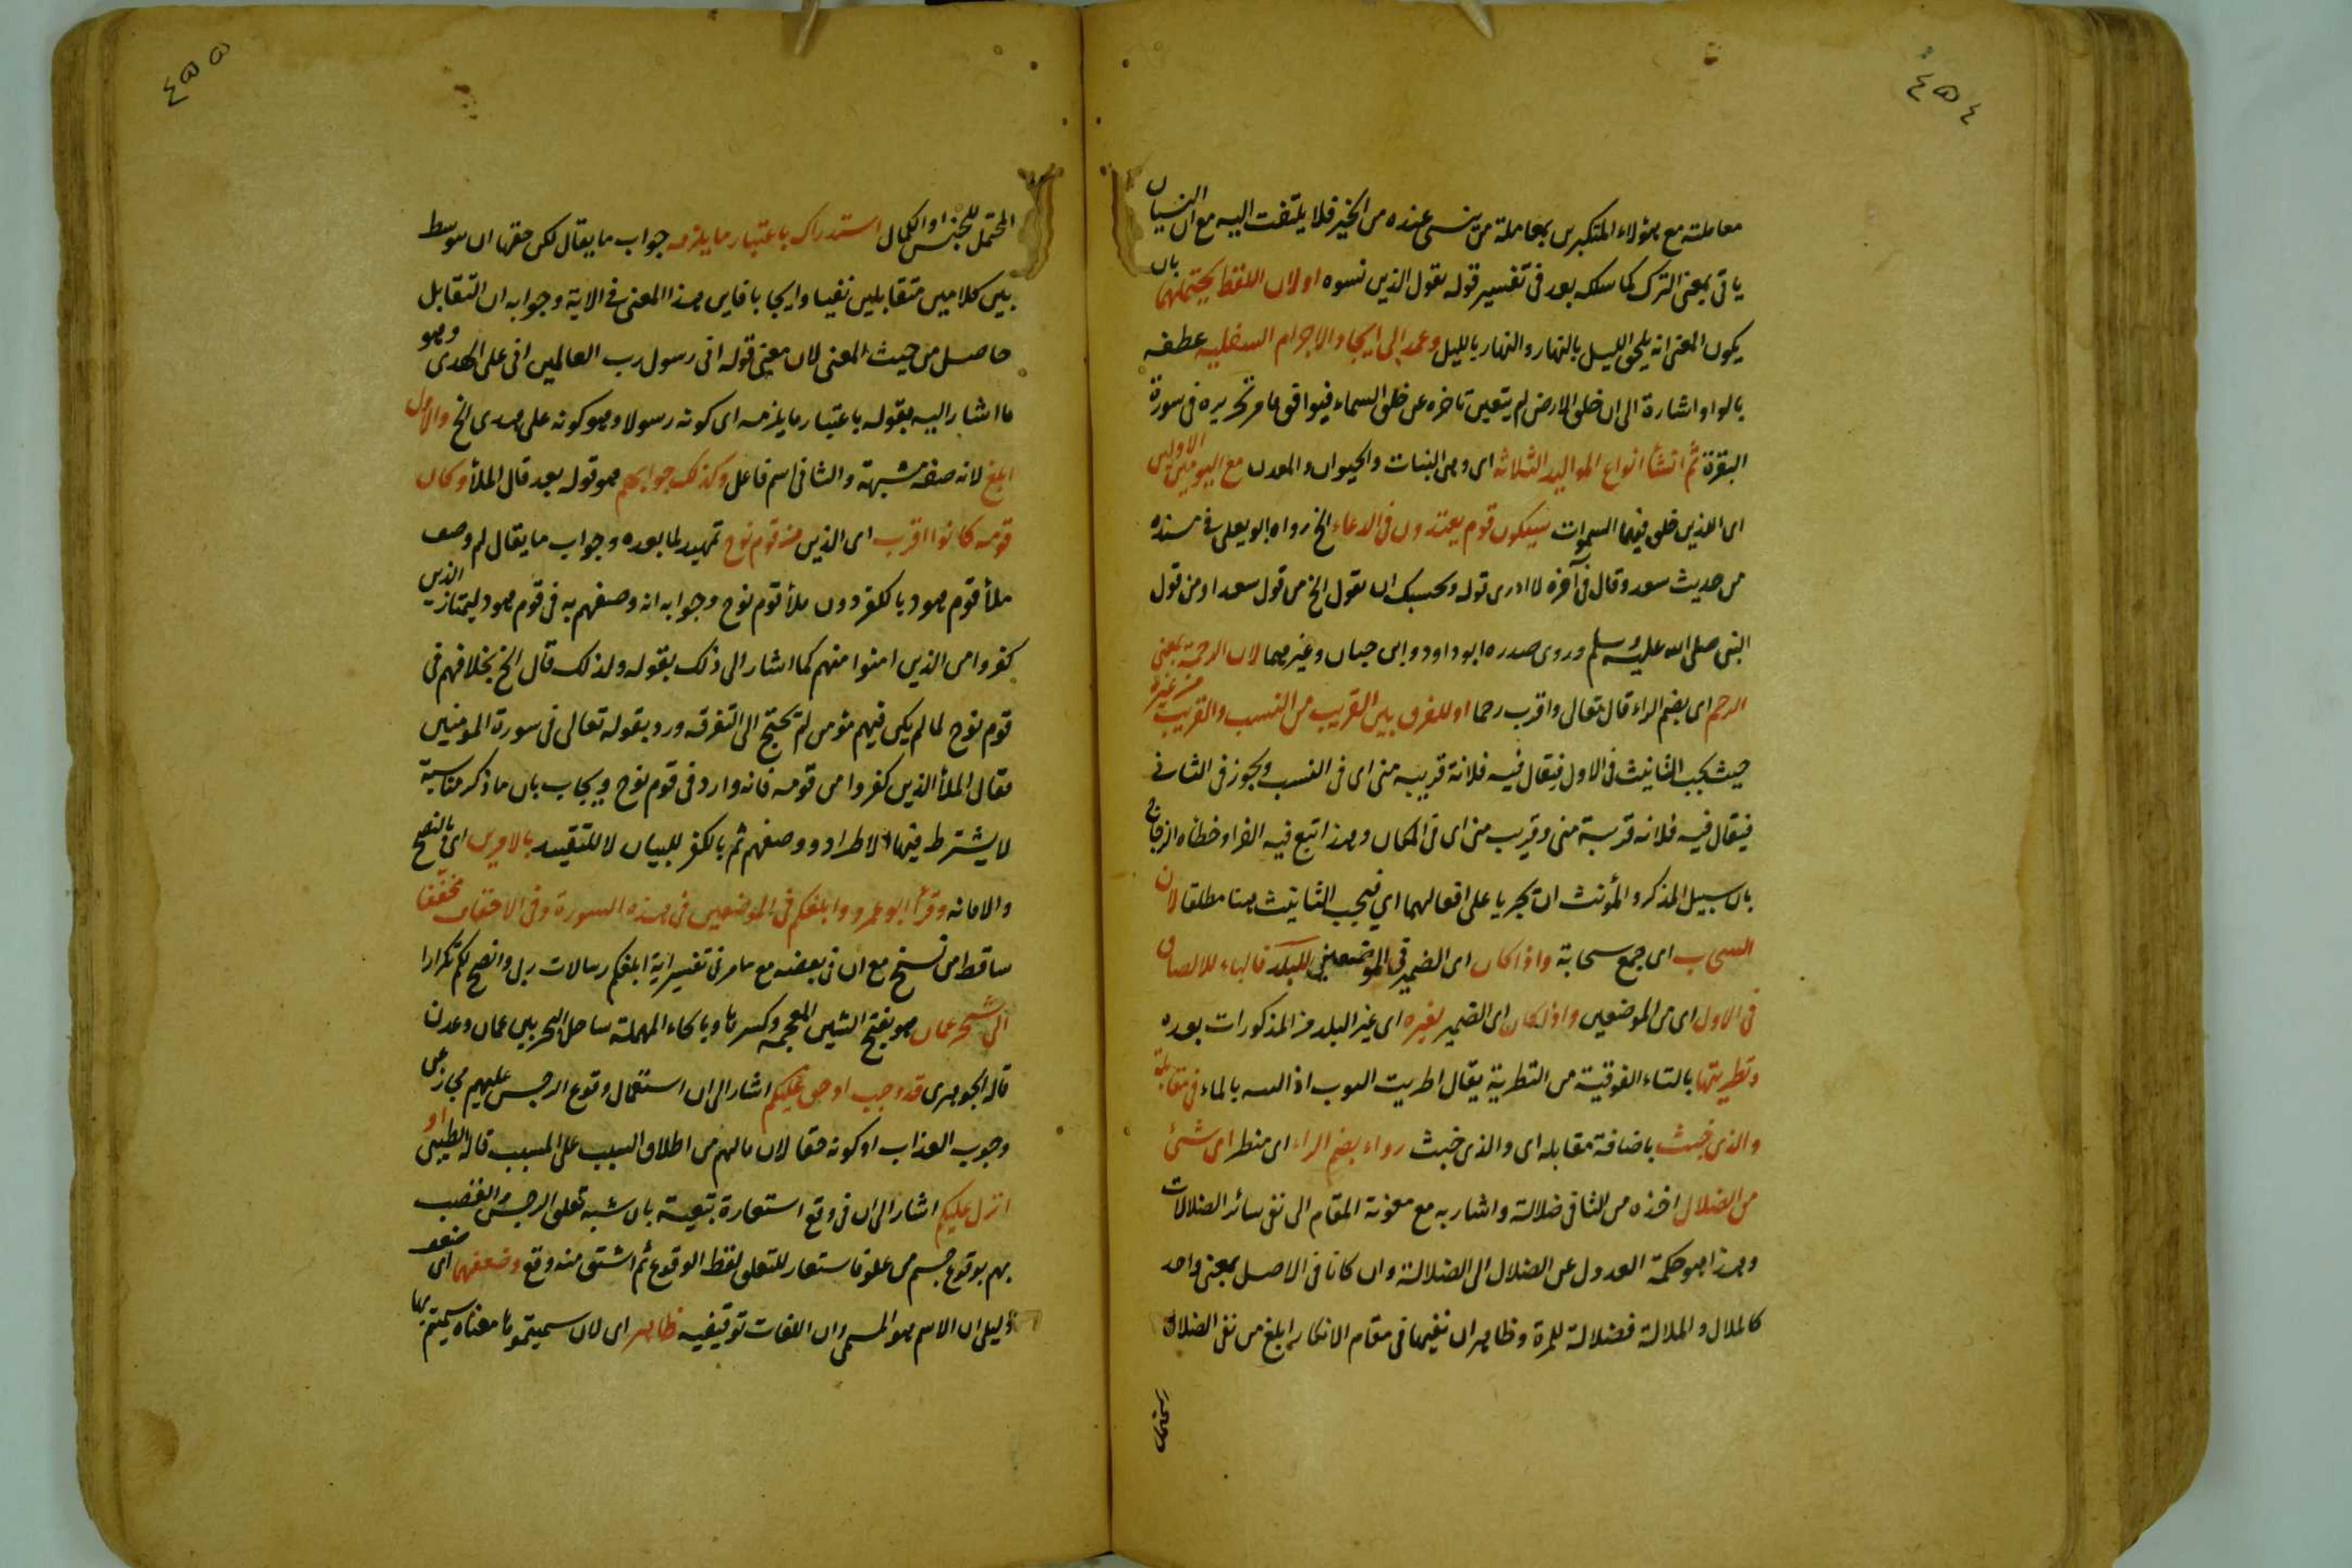 ٤٥٤
معاملته مع هؤلاء المتكبرين بمعاملة من ينسى عنده من الخير فلا يلتفت اليه مع ان النسيان
ياتى بمعنى الترك كما سلكه بعد فى تفسير قوله يقول الذين نسوه اولان اللفظ يحتملهما بان
يكون المعنى انه يلحق الليل بالنهار والنهار بالليل وعمد الى ايجاد الاجرام السفلية عطفه
بالواو اشارة الى ان خلق الارض لم يتعين تاخره عن خلق السماء فيوافق ما مر تحريره فى سورة
البقرة ثم انشأ انواع المواليد الثلاثه اى وهى النبات والحيوان والمعدن مع اليومين الاولين
اى اللذين خلق فيهما السموات سيكون قوم يعتدون فى الدعاء الخ رواه ابو يعلى فى مسنده
من حديث سعد وقال فى آخره لا ادرى قوله وحسبك ان يقول الخ من قول سعد او من قول
النبى صلى الله عليه وسلم وروى صدره ابو داود وابن حبان وغيرهما لان الرحمة بمعنى
الرحم اى بضم الراء قال تعالى واقرب رحما او للفرق بين القريب من النسب والقريب من غيره
حيث يجب التانيث فى الاول فيقال فيه فلانة قريبه منى اى فى النسب ويجوز فى الثانى
فيقال فيه فلانه قريبة منى وقريب منى اى فى المكان وهذا اتبع فيه الفرا وخطأه الزجاج
بان سبيل المذكر والمؤنث ان يجريا على افعالهما اى فيجب التانيث هنا مطلقا لان
السحاب اى جمع سحابة واذا كان اى الضمير فى الموضعين للبلد فالباء للالصاق
فى الاول اى من الموضعين واذا كان اى الضمير لغيره اى غير البلد من المذكورات بعده
وتطريتها بالتاء الفوقية من التطرية يقال اطريت الثوب اذا بالماء فى مقابلة
والذى خبث باضافة مقابله اى والذى خبث رواء بضم الراء اى منظر اى شئ
من الضلال اخذه من الثانى ضلالة واشار به مع معونة المقام الى نفى سائر الضلالات
وهذا هو حكمة العدول عن الضلال الى الضلالة وان كانا فى الاصل بمعنى واحد
كالملال والملالة فضلالة للمرة وظاهر ان نفيها فى مقام الانكار ابلغ من نفى الضلال
المحتمل
٤٥٥
المحتمل للجنس او الكمال استدراك باعتبار ما يلزمه جواب ما يقال لكن حقها ان توسط
بين كلامين متقابلين نفيا وايجابا فاين هذا المعنى فى الاية وجوابه ان التقابل
حاصل من حيث المعنى لان معنى قوله انى رسول رب العالمين انى على الهدى وهو
ما اشار اليه بقوله باعتبار ما يلزمه اى كونه رسولا وهو كونه على هدى الخ والاول
ابلغ لانه صفة مشبهة والثانى اسم فاعل وكذلك جوابهم هو قوله بعد قال الملأ وكان
قومه كانوا اقرب اى الذين من قوم نوح تمهيد لما بعده وجواب ما يقال لم وصف
ملأ قوم هود بالكفر دون ملأ قوم نوح وجوابه انه وصفهم به فى قوم هود ليمتاز الذين
كفروا من الذين امنوا منهم كما اشار الى ذلك بقوله ولذلك قال الخ بخلافهم فى
قوم نوح لما لم يكن فيهم مؤمن لم يحتج الى التفرقه ورد بقوله تعالى فى سورة المومنين
فقال الملأ الذين كفروا من قومه فانه وارد فى قوم نوح ويجاب بان ما ذكر مناسبة
لا يشترط فيها الاطراد ووصفهم ثم بالكفر للبيان لا للتقييد بالامرين اى بالنصح
والامانه وقرأ ابو عمرو ابلغكم فى الموضعين فى هذه السورة وفى الاحقاف مخففا
ساقط من نسخ مع ان فى بعضه مع ما مر فى تفسير اية ابلغكم رسالات ربى وانصح لكم تكرارا
الى شحر عمان هو بفتح الشين المعجمه وكسرها وبالحاء المهملة ساحل البحر بين عمان وعدن
قاله الجوهرى قد وجب او حق عليكم اشار الى ان استعمال وقوع الرجس عليهم مجاز عن
وجوب العذاب او كونه حقا لان مالهم من اطلاق السبب على المسبب قاله الطيبى او
انزل عليكم اشار الى ان فى وقع استعارة تبعية بان شبه تعلق الرجس والغضب
بهم بوقوع جسم من علو فاستعار للتعلق لفظ الوقوع ثم اشتق منه وقع وضعفهما اى ضعف
دليل ان الاسم هو المسمى وان اللغات توقيفيه ظاهر اى لان سميتموها معناه سميتم بها